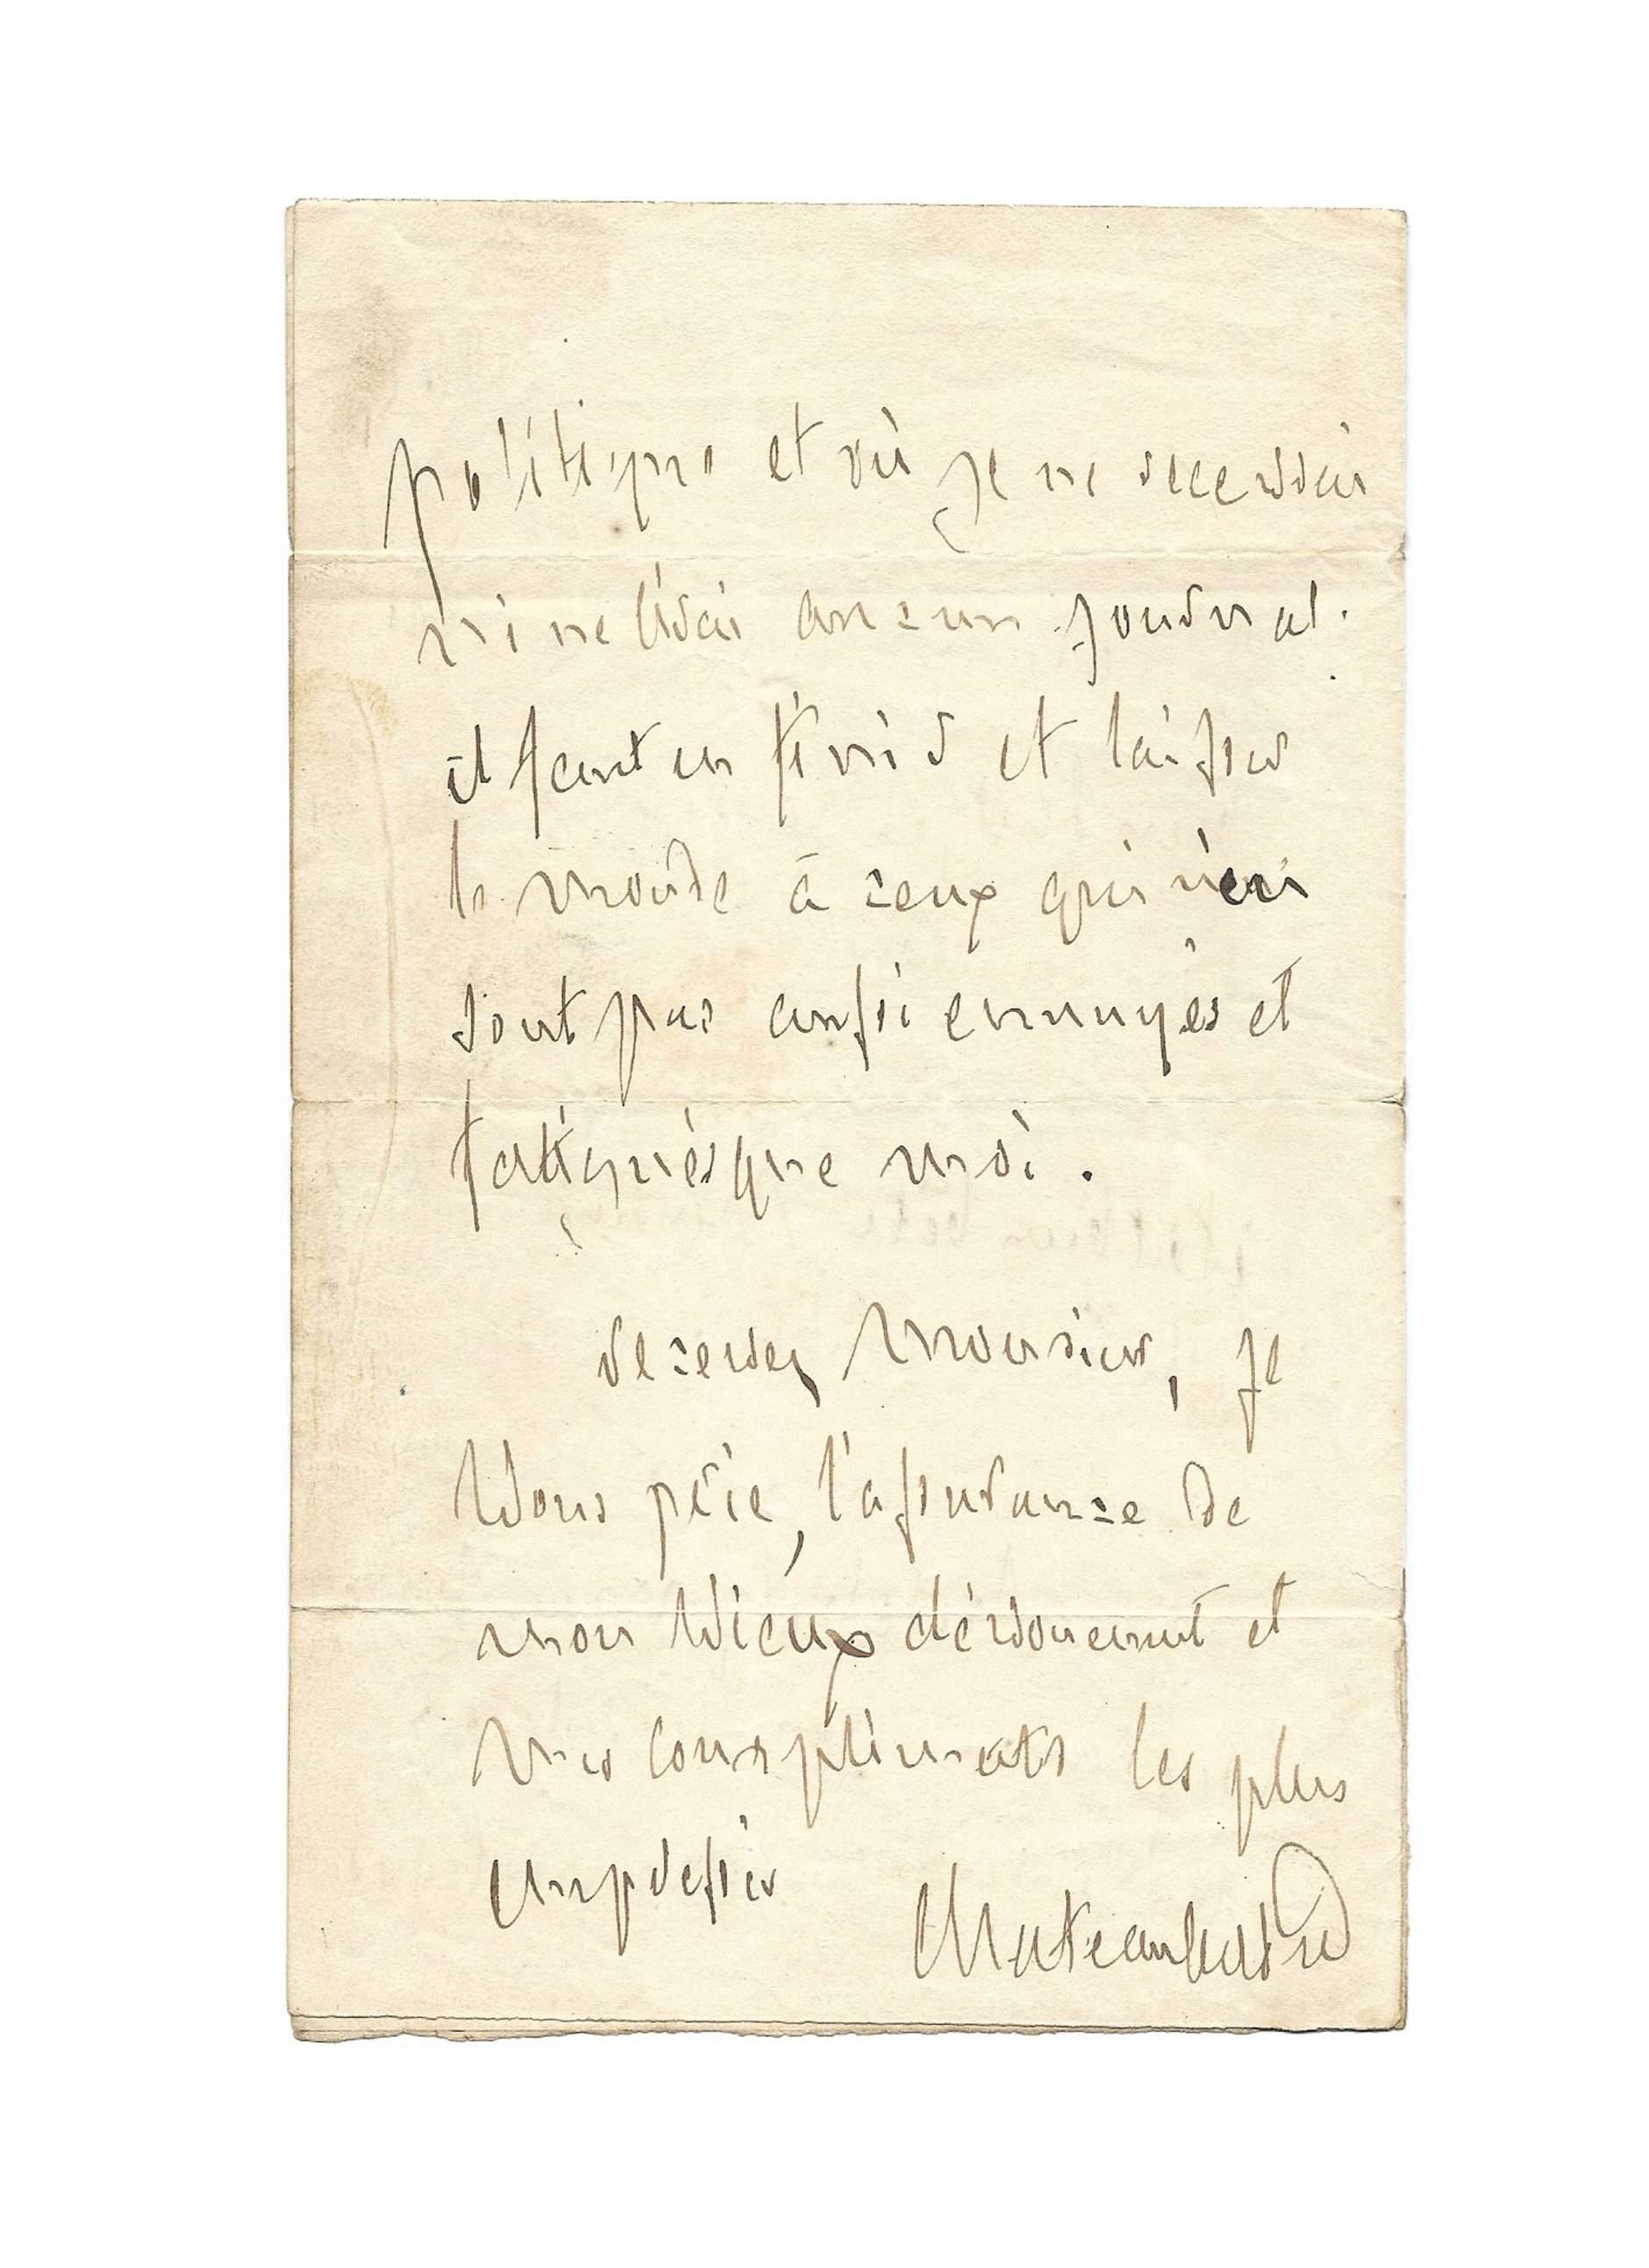 politique et où je ne recevrai
ni ne lirai aucun journal.
il faut en finir et laisser
le monde à ceux qui n'en
sont pas aussi ennuyés et
fatigués que moi.
recevez Monsieur, je
Vous prie, l'assurance de
mon vieux dévouement et
mes compliments les plus
empressés
Chateaubriand